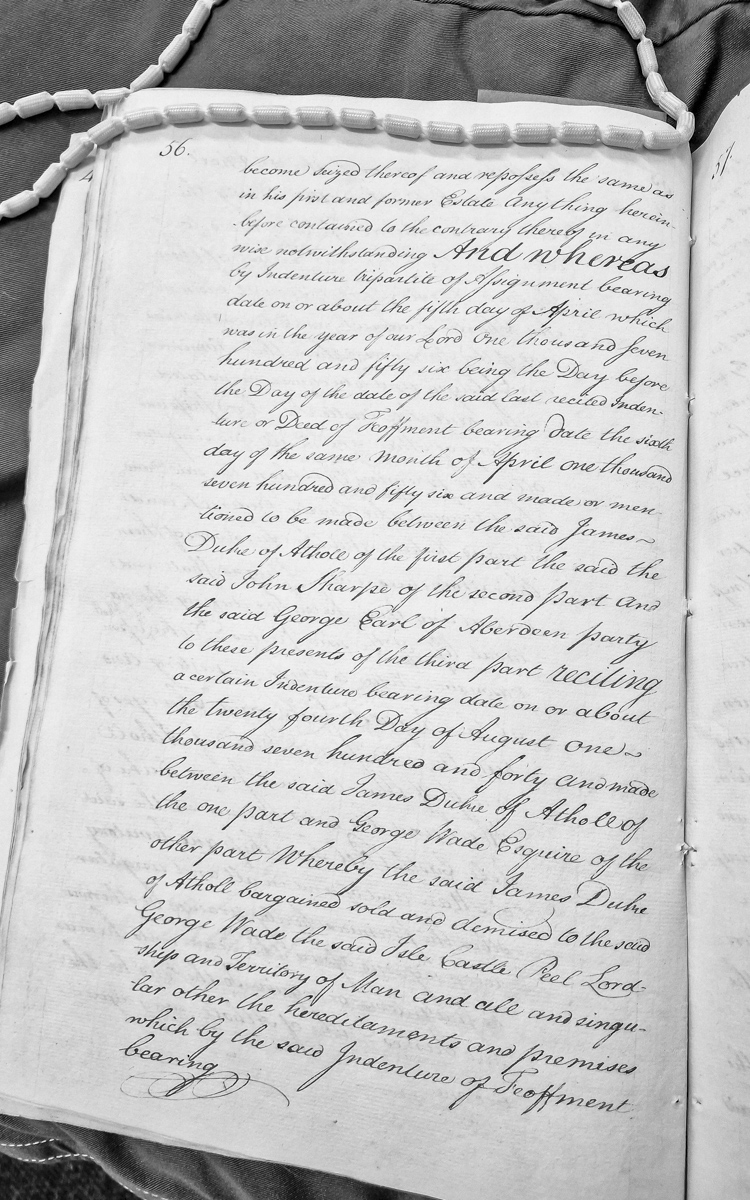 56.
become Seized thereof and repossess the same as
in his first and former Estate Any thing herein-
before contained to the contrary thereof in any
wise notwithstanding And whereas
by Indenture tripartite of Assignment bearing
date on or about the fifth day of April which
was in the year of our Lord One thousand Seven
hundred and fifty six being the Day before
the Day of the date of the said last recited Inden-
ture or Deed of Feoffment bearing date the sixth
day of the same month of April one thousand
seven hundred and fifty six and made or men-
tioned to be made between the said James
Duke of Atholl of the first part the said the
said John Sharpe of the second part and
the said George Earl of Aberdeen party
to these presents of the third part reciting
a certain Indenture bearing date on or about
the twenty fourth Day of August One
thousand seven hundred and forty and made
between the said James Duke of Atholl of
the one part and George Wade Esquire of the
other part Whereby the said James Duke
of Atholl bargained sold and demised to the said
George Wade the said Isle Castle Peel Lord-
ship and Territory of Man and all and singu-
lar other the hereditaments and premises
which by the said Indenture of Feoffment
bearing
57